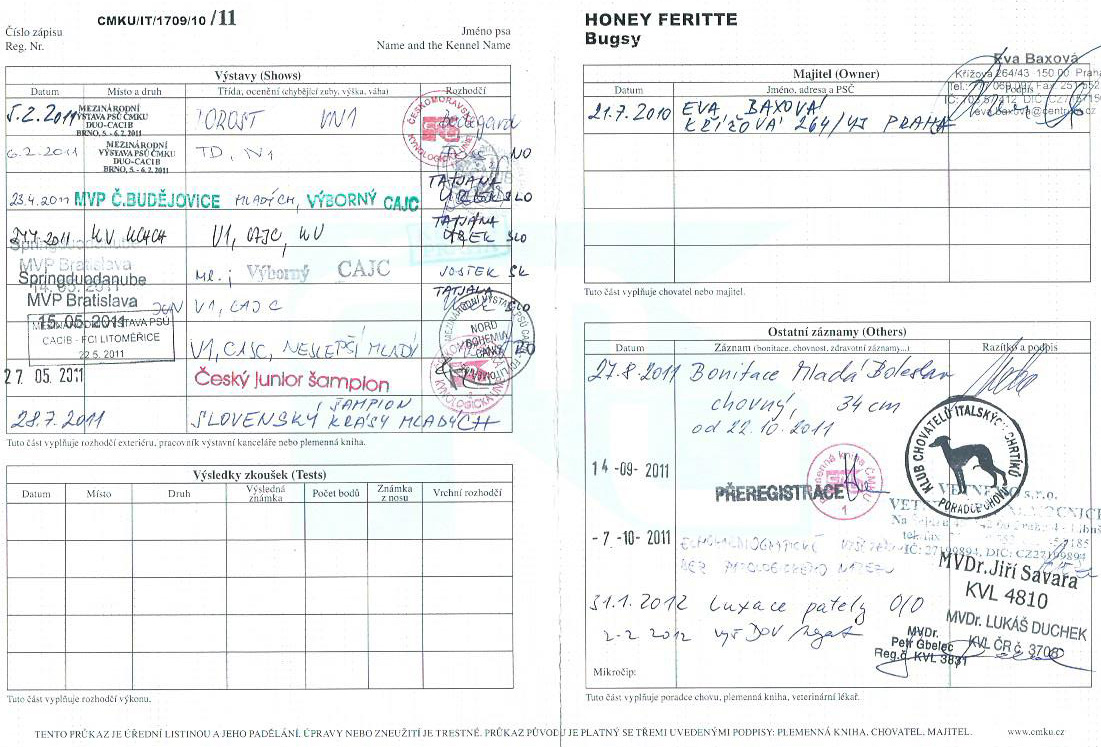 CMKU/IT/1709/10 /11
Číslo zápisu
Reg. Nr.
Jméno psa
Name and the Kennel Name
Výstavy (Shows)
Datum Místo a druh Třída, ocenění (chybějící zuby, výška, váha) Rozhodčí
5.2.2011 MEZINÁRODNÍ VÝSTAVA PSŮ ČMKU DUO-CACIB BRNO, 5. - 6. 2. 2011 DOROST VN1
6.2.2011 MEZINÁRODNÍ VÝSTAVA PSŮ ČMKU DUO-CACIB BRNO, 5. - 6. 2. 2011 TD, N1
23.4.2011 MVP Č.BUDĚJOVICE MLADÝCH, VÝBORNÝ CAJC TATJANA UREK SLO
2011 KV KCHCH V1, CAJC, KV TATJANA UREK SLO
Springduodanube
MVP Bratislava
14. 05. 2011
ML. i Výborný CAJC JOSTEK SK
Springduodanube
MVP Bratislava
15. 05. 2011
JUN V1, CAJC TATJANA UREK SLO
MEZINÁRODNÍ VÝSTAVA PSŮ
CACIB - FCI LITOMĚŘICE
22.5.2011
V1, CAJC, NEJLEPŠÍ MLADÝ
NORD BOHEMIA CANIS
27 05. 2011 Český Junior šampion
28.7.2011 SLOVENSKÝ ŠAMPION KRÁSY MLADÝCH
Tuto část vyplňuje rozhodčí exteriéru, pracovník výstavní kanceláře nebo plemenná kniha.
Výsledky zkoušek (Tests)
Datum Místo Druh Výsledná známka Počet bodů Známka z nosu Vrchní rozhodčí
Tuto část vyplňuje rozhodčí výkonu.
HONEY FERITTE
Bugsy
Eva Baxová
Křížová 264/43 150 00 Praha
Majitel (Owner)
Datum Jméno, adresa a PSČ Podpis
21.7.2010 EVA BAXOVÁ
KŘÍŽOVÁ 264/43 PRAHA
Tuto část vyplňuje chovatel nebo majitel.
Ostatní záznamy (Others)
Datum Záznam (bonitace, chovnost, zdravotní záznamy...) Razítko a podpis
27.8.2011 Bonitace Mladá Boleslav
chovný, 34 cm
od 22.10.2011
KLUB CHOVATELŮ ITALSKÝCH CHRTÍKŮ
PORADCE CHOVU
14 -09- 2011 PŘEREGISTRACE
Plemenná kniha ČMKU
1
-7 -10- 2011
IČ: 27199894, DIČ: CZ27199894
MVDr.Jiří Savara
KVL 4810
31.1.2012 Luxace pately 0/0
MVDr. LUKÁŠ DUCHEK
KVL ČR č. 3708
2-2 2012
MVDr.
Petr Gbelec
Reg.č. KVL 3831
Mikročip:
Tuto část vyplňuje poradce chovu, plemenná kniha, veterinární lékař.
TENTO PRŮKAZ JE ÚŘEDNÍ LISTINOU A JEHO PADĚLÁNÍ. ÚPRAVY NEBO ZNEUŽITÍ JE TRESTNÉ. PRŮKAZ PŮVODU JE PLATNÝ SE TŘEMI UVEDENÝMI PODPISY: PLEMENNÁ KNIHA. CHOVATEL. MAJITEL. www.cmku.cz